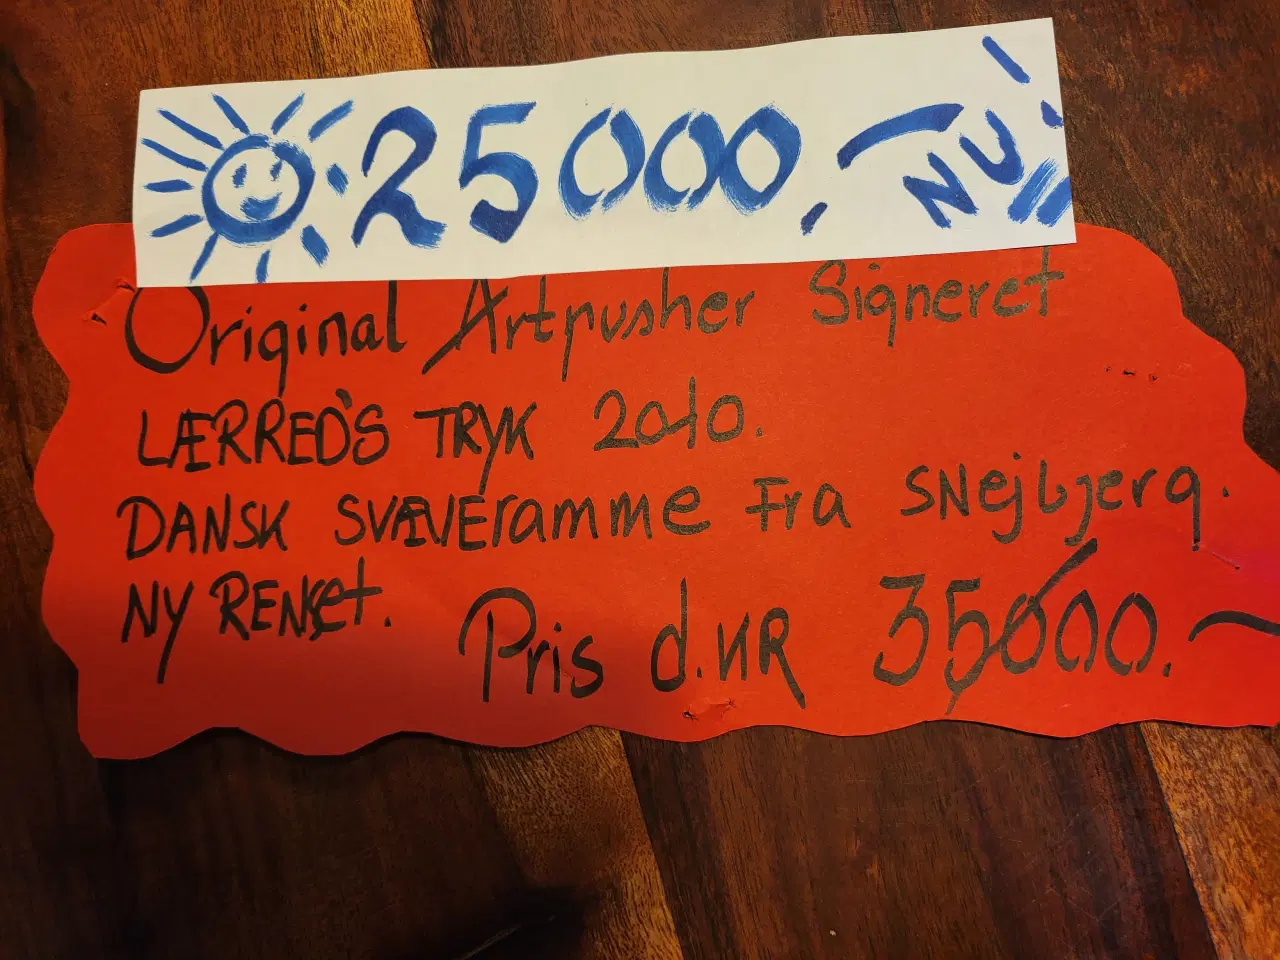 25000,- NU!
Original Artpusher Signeret
LÆRRED'S TRYK 2010.
DANSK SVÆVEramme Fra SNejbjerg.
NY RENSet. Pris d.KR 35000.-